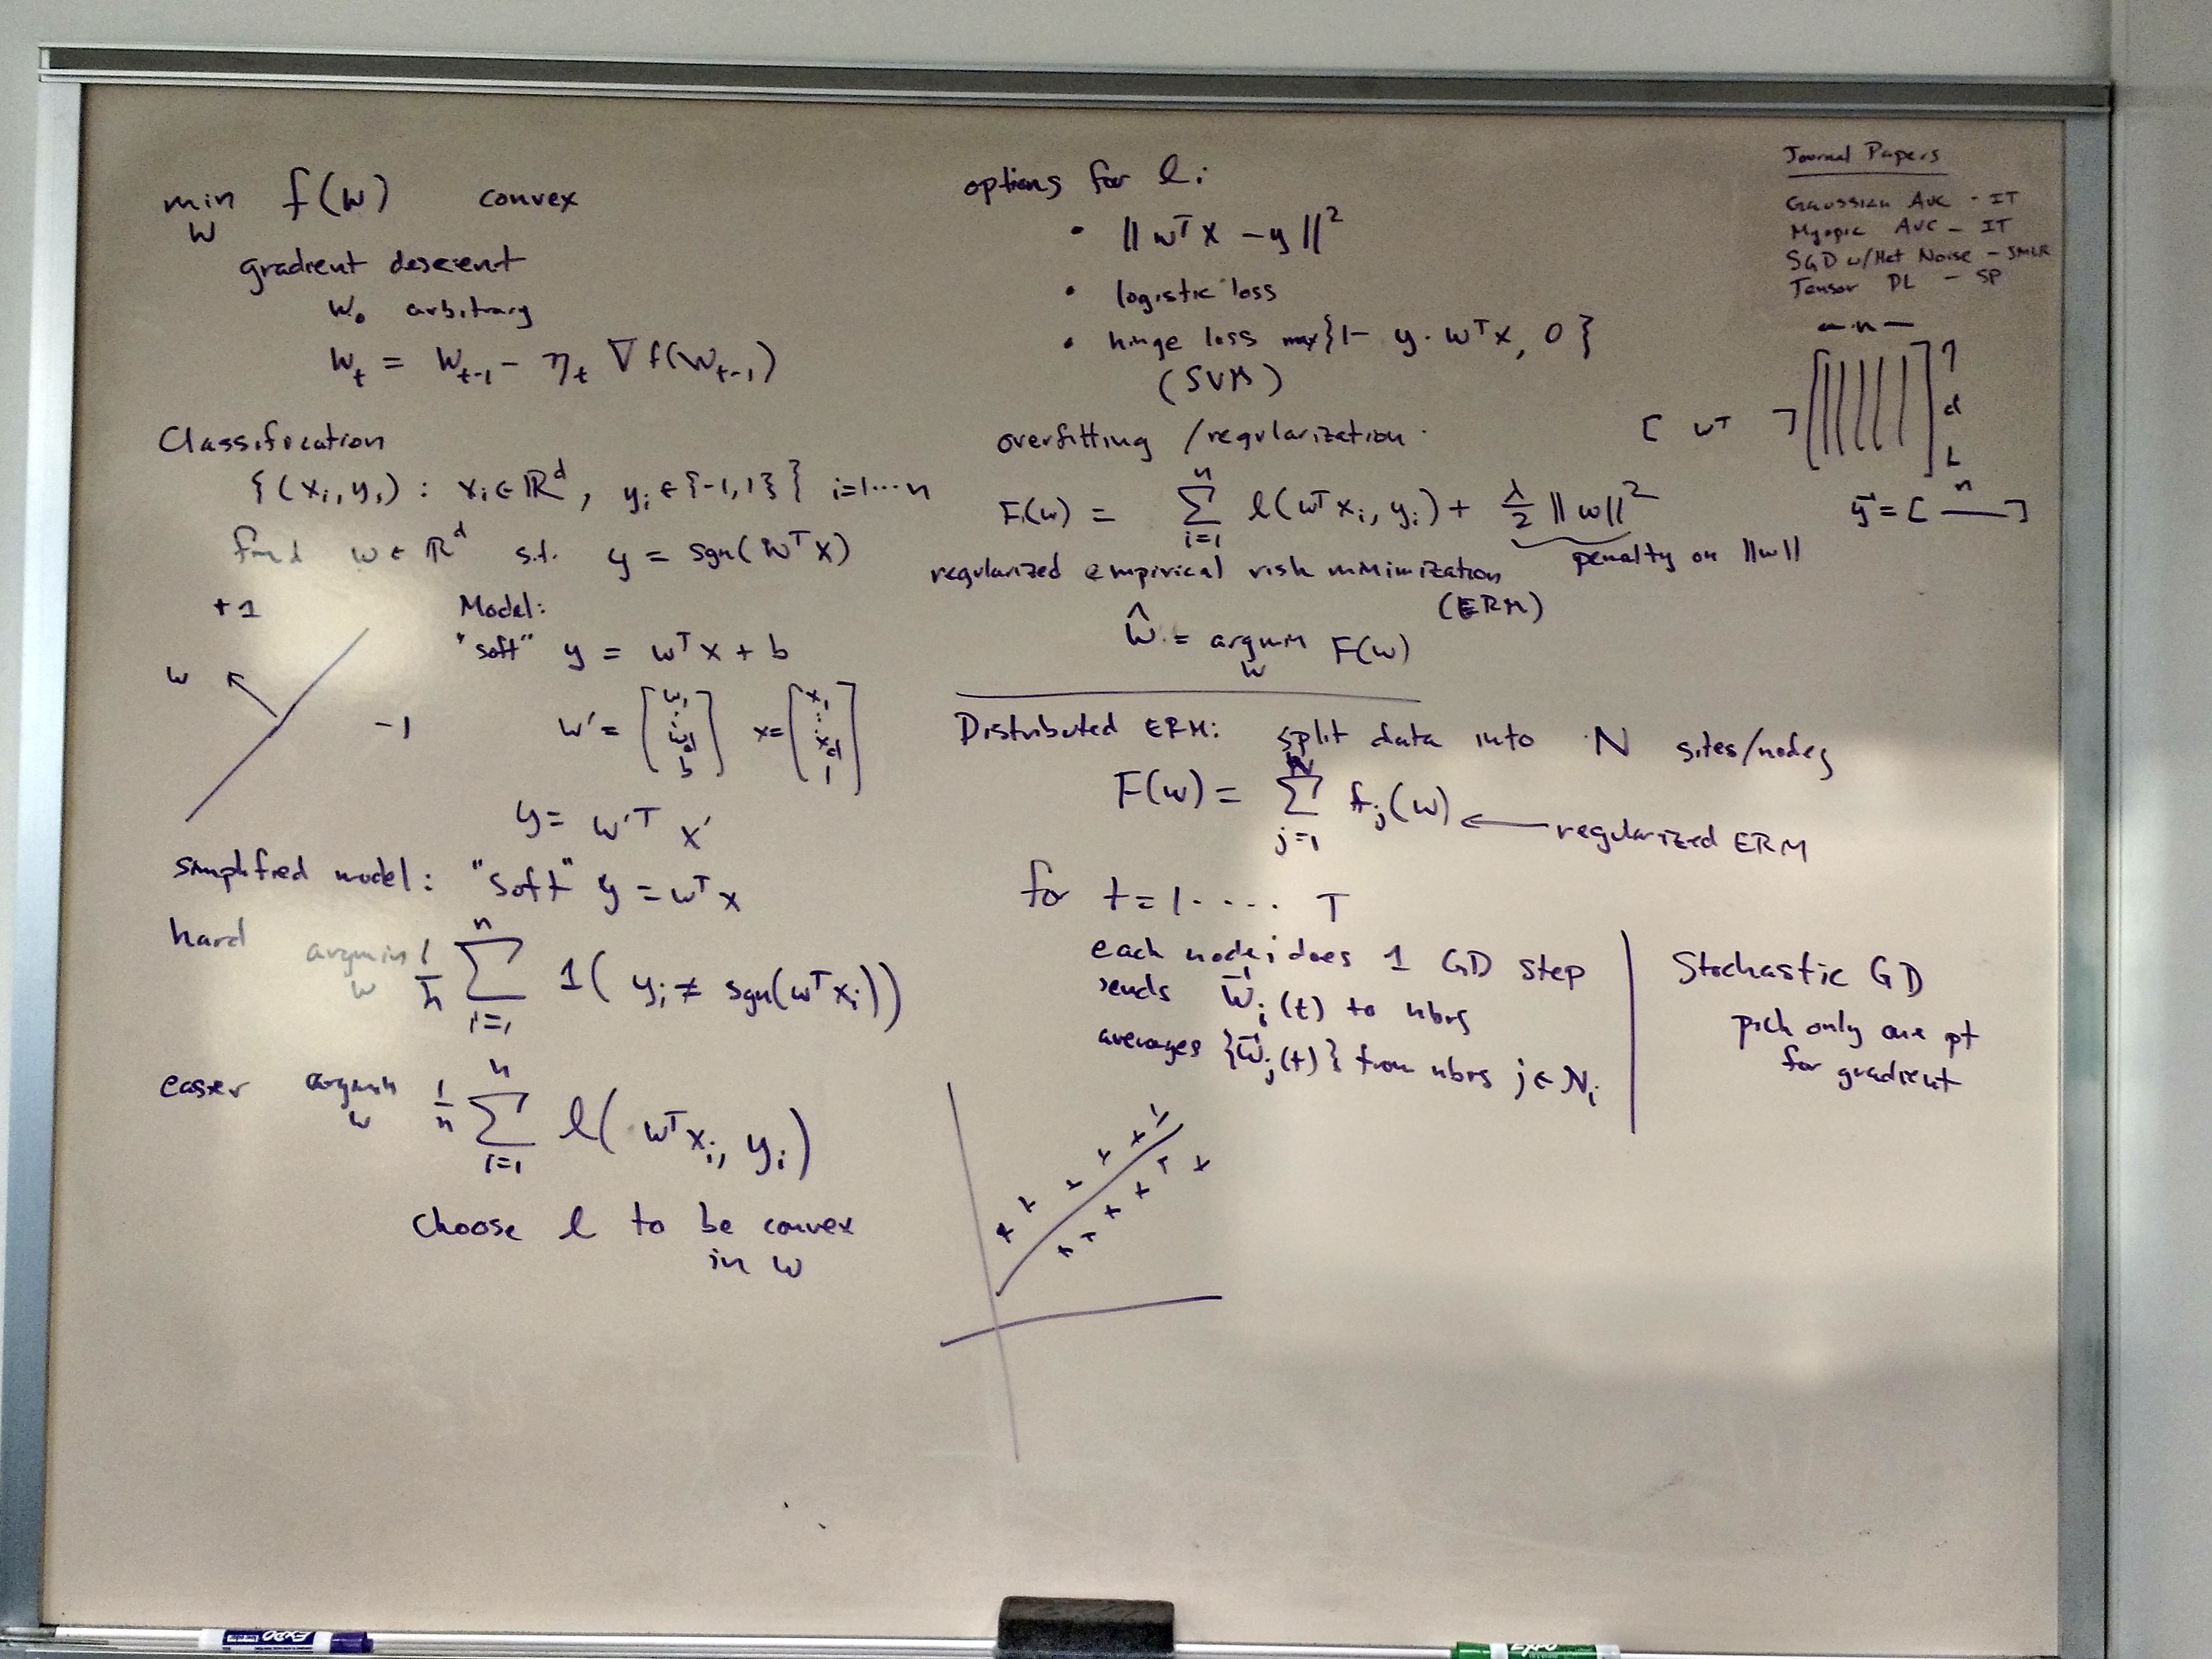 min f(w) convex
w
gradient descent
w₀ arbitrary
w_t = w_{t-1} - η_t ∇f(w_{t-1})
Classification
{(x_i, y_i) : x_i ∈ ℝ^d, y_i ∈ {-1,1}} i=1...n
find w ∈ ℝ^d s.t. y = sgn(w^T x)
+1
w
-1
Model:
"soft" y = w^T x + b
w' = [w_1 ⋮ w_d b] x = [x_1 ⋮ x_d 1]
y = w'^T x'
simplified model: "soft" y = w^T x
hard argmin_w 1/n Σ_{i=1}^n 1(y_i ≠ sgn(w^T x_i))
easier argmin_w 1/n Σ_{i=1}^n l(w^T x_i, y_i)
choose l to be convex
in w
options for l:
• ||w^T x - y||²
• logistic loss
• hinge loss max{1- y·w^T x, 0}
(SVM)
overfitting /regularization
F(w) = Σ_{i=1}^n l(w^T x_i, y_i) + λ/2 ||w||²
penalty on ||w||
regularized empirical risk minimization
(ERM)
ŵ = argmin_w F(w)
Distributed ERM: split data into N sites/nodes
F(w) = Σ_{j=1}^N f_j(w) ← regularized ERM
for t=1..... T
each node i does 1 GD step
sends w_i(t) to nbrs
averages {w_j(t)} from nbrs j ∈ N_i
Stochastic GD
pick only one pt
for gradient
Journal Papers
Gaussian AVC - IT
Myopic AVC - IT
SGD w/Het Noise - JMLR
Tensor DL - SP
n
[ w^T ]
d
n
y = [ — ]
EXPO
EXPO